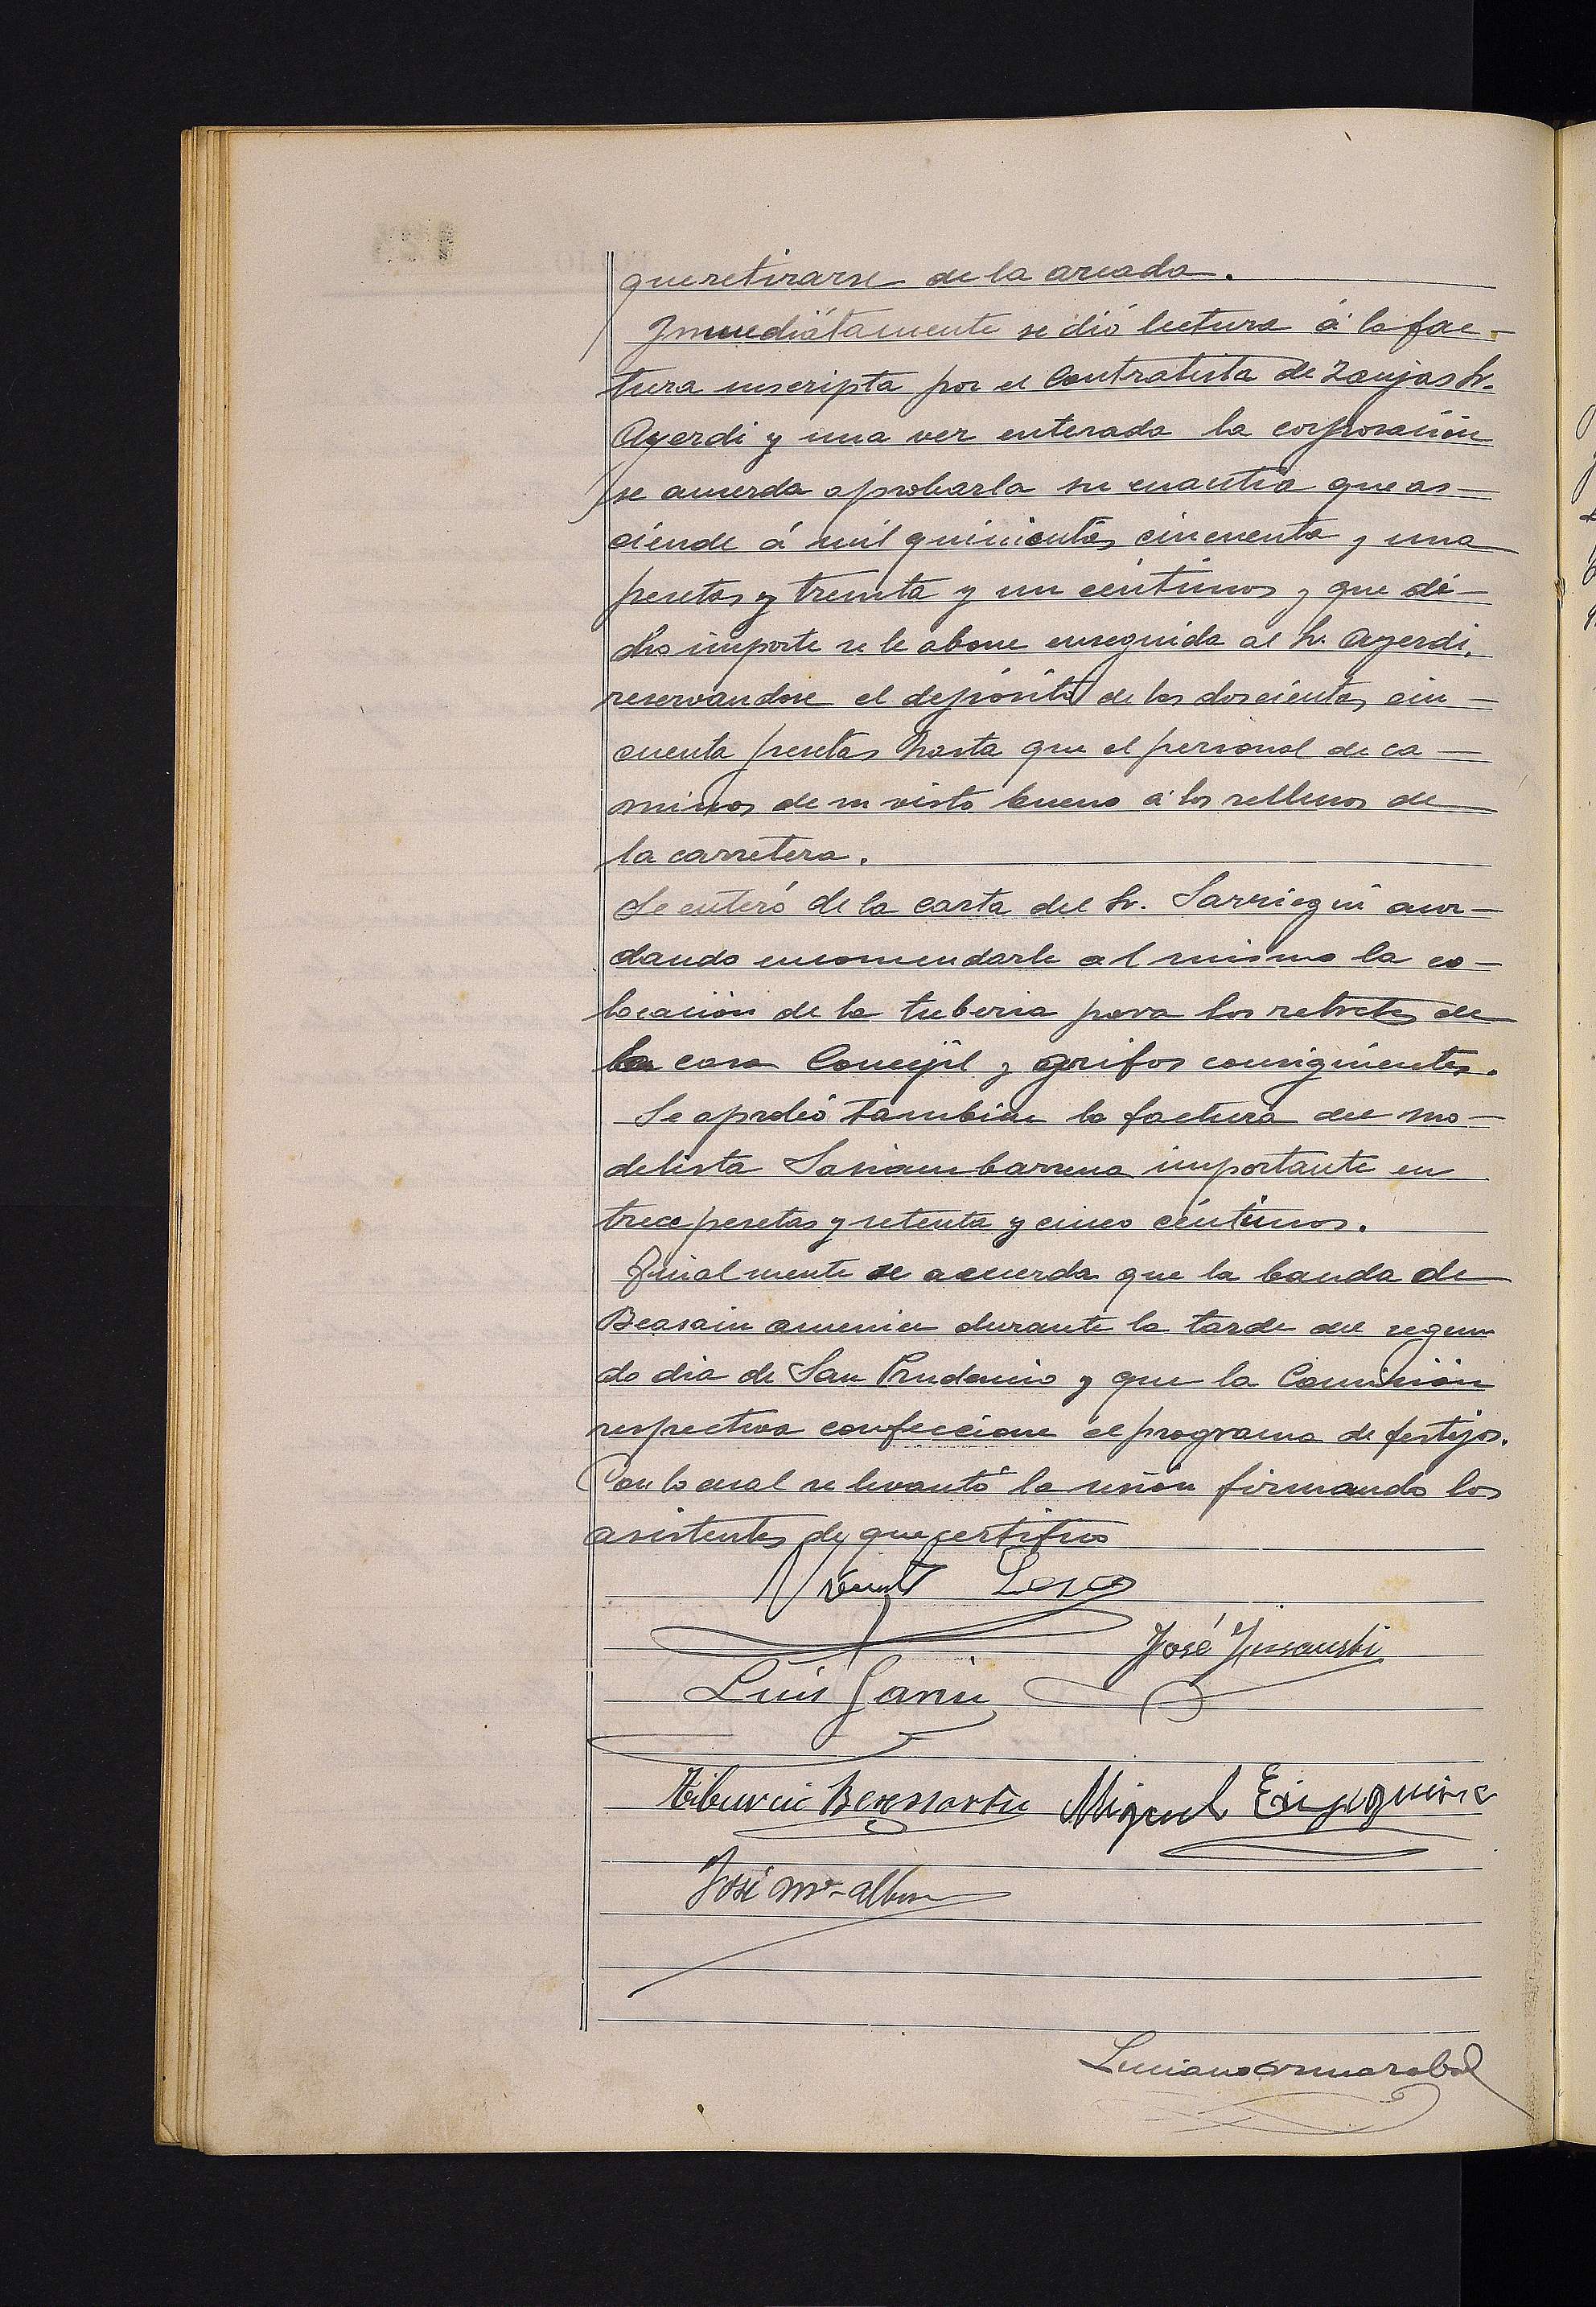 que retirarse de la arcada.
Inmediátamente se dió lectura á la fac-
tura suscripta por el Contratista de Zanjas Sr.
Ayerdi y una vez enterada la corporación
se acuerda aprobarla su cuantia que as-
ciende á mil quinientas cincuenta y una
pesetas y treinta y un céntimos y que di-
cho importe se le abone enseguida al Sr. Ayerdi,
reservandose el depósito de las doscientas cin-
cuenta pesetas hasta que el personal de ca-
minos de su visto bueno á los rellenos de
la carretera.
Se enteró de la carta del Sr. Sarriegui acor-
dando encomendarle al mismo la co-
locación de la tuberia para los retretes de
la casa Concejil y grifos consiguientes.
Se aprobó tambien la factura del mo-
delista Sasiambarrena importante en
trece pesetas y setenta y cinco céntimos.
Finalmente se acuerda que la banda de
Beasain amenice durante la tarde del segun
do dia de San Prudencio y que la Comisión
respectiva confeccione el programa de festejos.
Con lo cual se levantó la sesión firmando los
asistentes de que certifico
José
Luis Garin
Miguel
José Mª
Luciano